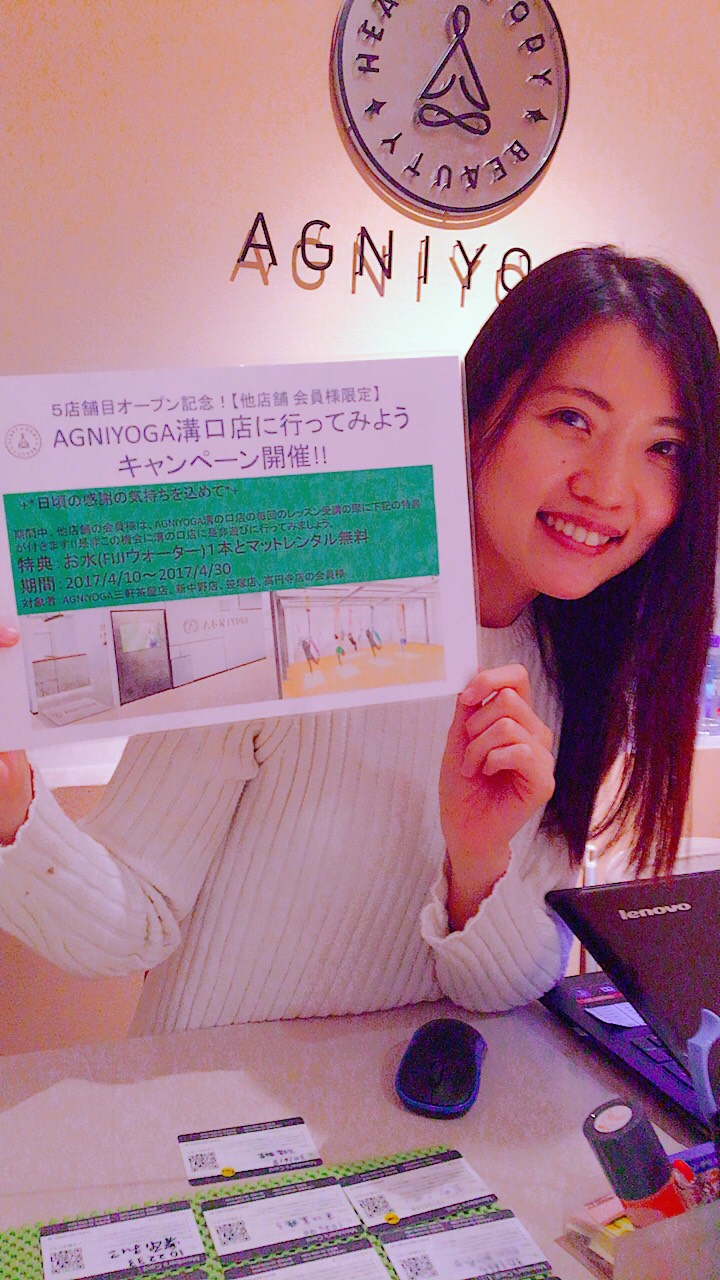 HEA
ODY
★ BEAUTY ★
AGNIYO
5店舗目オープン記念！【他店舗 会員様限定】
AGNIYOGA溝口店に行ってみよう
キャンペーン開催!!
+*日頃の感謝の気持ちを込めて*+
期間中、他店舗の会員様は、AGNIYOGA溝の口店の毎回のレッスン受講の際に下記の特典
が付きます!!是非この機会に溝の口店に是非遊びに行ってみましょう。
特典：お水(FIJIウォーター)1本とマットレンタル無料
期間：2017/4/10～2017/4/30
対象者：AGNIYOGA三軒茶屋店、新中野店、笹塚店、高円寺店の会員様
lenovo
Member's Card